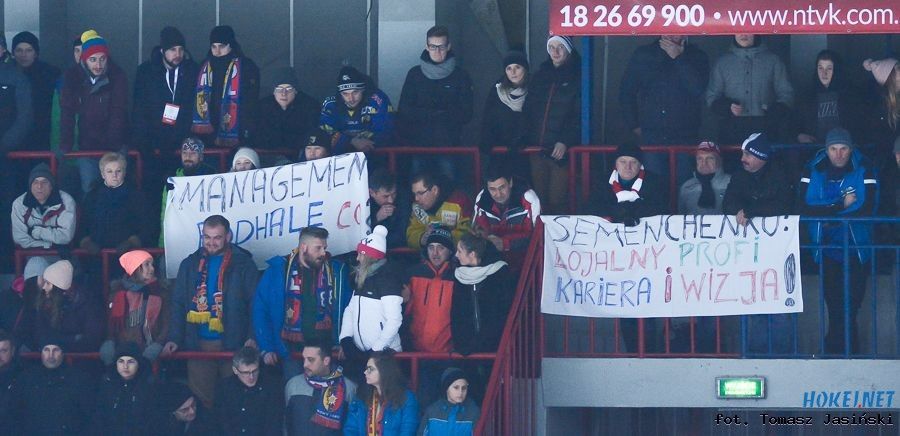 18 26 69 900 • www.ntvk.com.
MANAGEMEN
PODHALE CO
SEMENCHENKO!
LOJALNY PROFI
KARIERA i WIZJA!
HOKEJ.NET
fot. Tomasz Jasiński